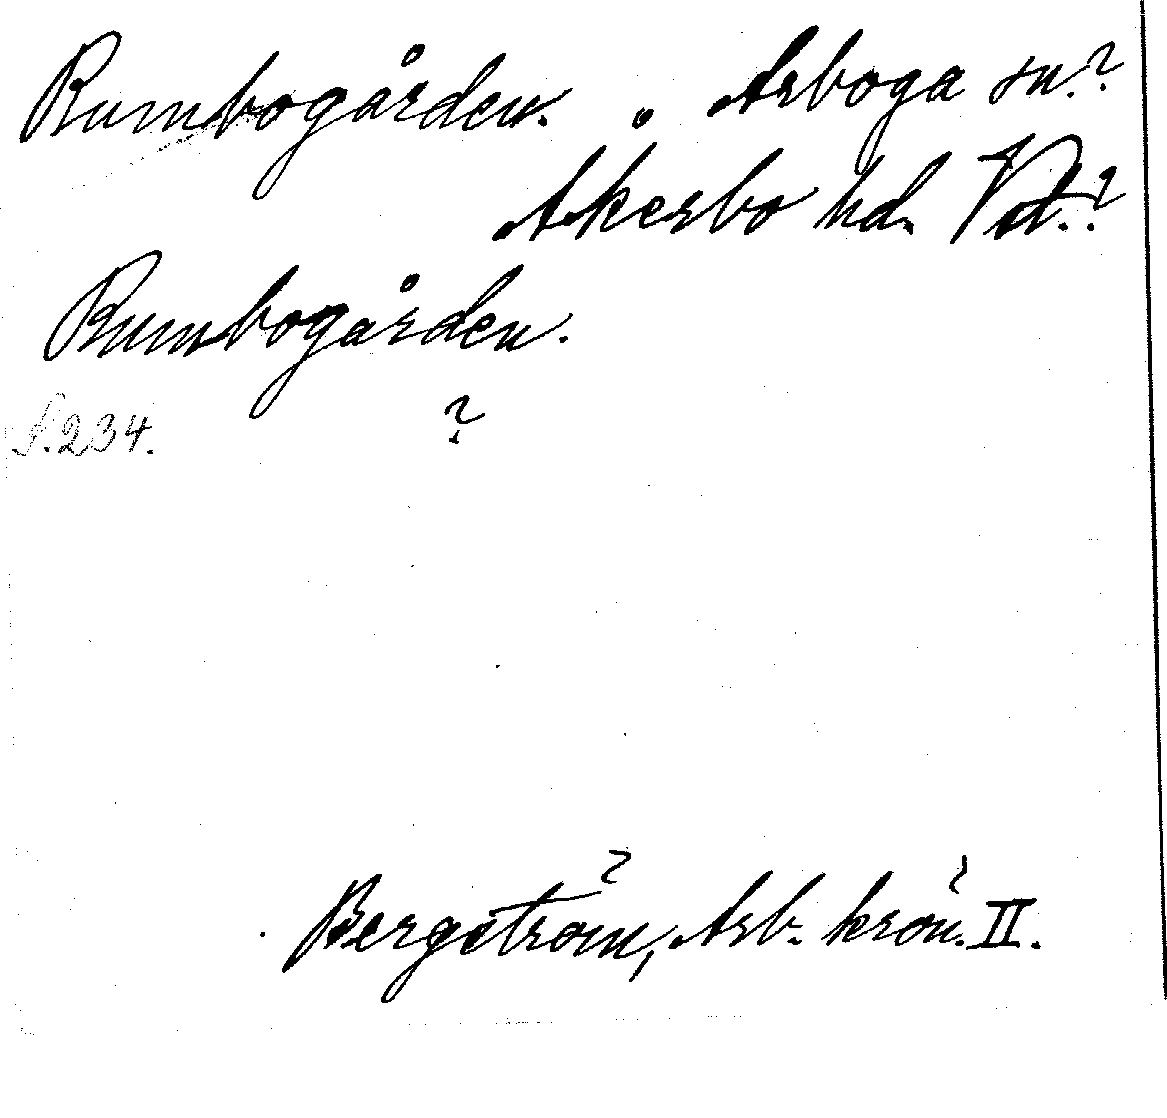 Rumbogården. Arboga sn.?
Åkerbo hd. Vstm.?
Rumbogården.
S. 234. ?
Bergström, Arb. krön. II.